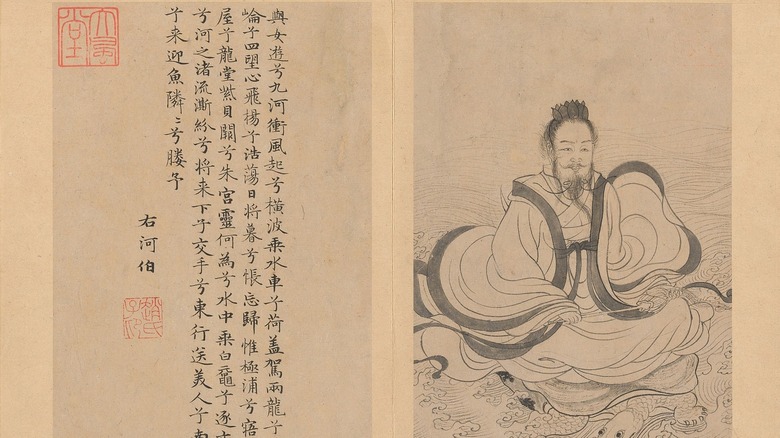 與女遊兮九河衝風起兮橫波乘水車兮荷蓋駕兩龍兮
崘兮四望心飛揚兮浩蕩日將暮兮悵忘歸惟極浦兮寤
屋兮龍堂紫貝闕兮朱宮靈何為兮水中乘白黿兮逐
兮河之渚流澌紛兮將来下子交手兮東行送美人兮南
兮来迎魚隣〻兮媵予
右河伯
趙氏子昂